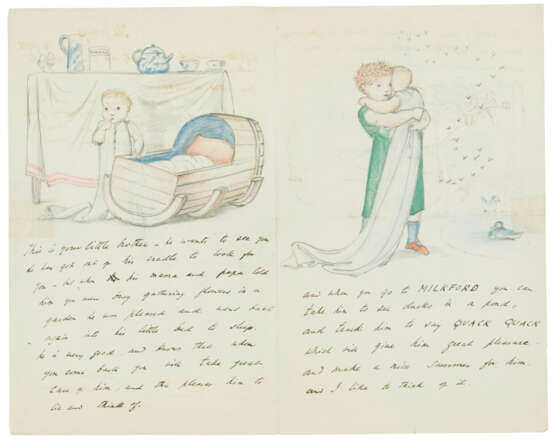 This is your little brother - he wants to see you
he has got out of his cradle to look for
you - but when his mama and papa told
him you were busy gathering flowers in a
garden he was pleased and went back
again into his little bed to sleep.
he is very good, and knows that when
you come back you will take great
care of him, and this pleases him to
lie and think of.
and when you go to MILKFORD you can
take him to see ducks in a pond,
and teach him to say QUACK QUACK
which will give him great pleasure -
and make a nice summer for him.
and I like to think of it.